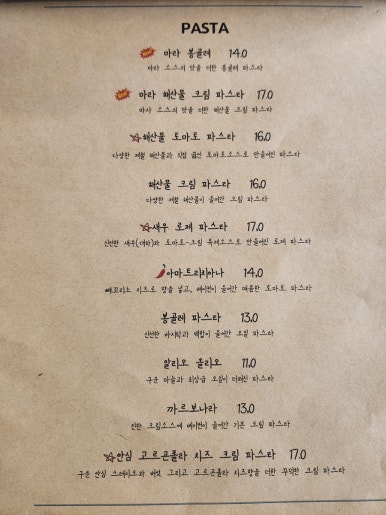 PASTA
마라 봉골레 14.0
마라 소스의 맛을 더한 봉골레 파스타
마라 해산물 크림 파스타 17.0
마라 소스의 맛을 더한 해산물 크림 파스타
해산물 토마토 파스타 16.0
다양한 제철 해산물과 직접 끓인 토마토소스로 만들어진 파스타
해산물 크림 파스타 16.0
다양한 제철 해산물이 들어간 크림 파스타
새우 로제 파스타 17.0
신선한 새우(대하)와 토마토-크림 소스로 만들어진 로제 파스타
아마트리치아나 14.0
치즈로 맛을 내고, 베이컨이 들어간 매콤한 토마토 파스타
봉골레 파스타 13.0
신선한 바지락과 백합이 들어간 오일 파스타
알리오 올리오 11.0
구운 마늘과 최상급 오일이 더해진 파스타
까르보나라 13.0
진한 크림소스에 베이컨이 들어간 기본 크림 파스타
안심 고르곤졸라 치즈 크림 파스타 17.0
구운 안심 스테이크와 버섯 그리고 고르곤졸라 치즈향을 더한 꾸덕한 크림 파스타